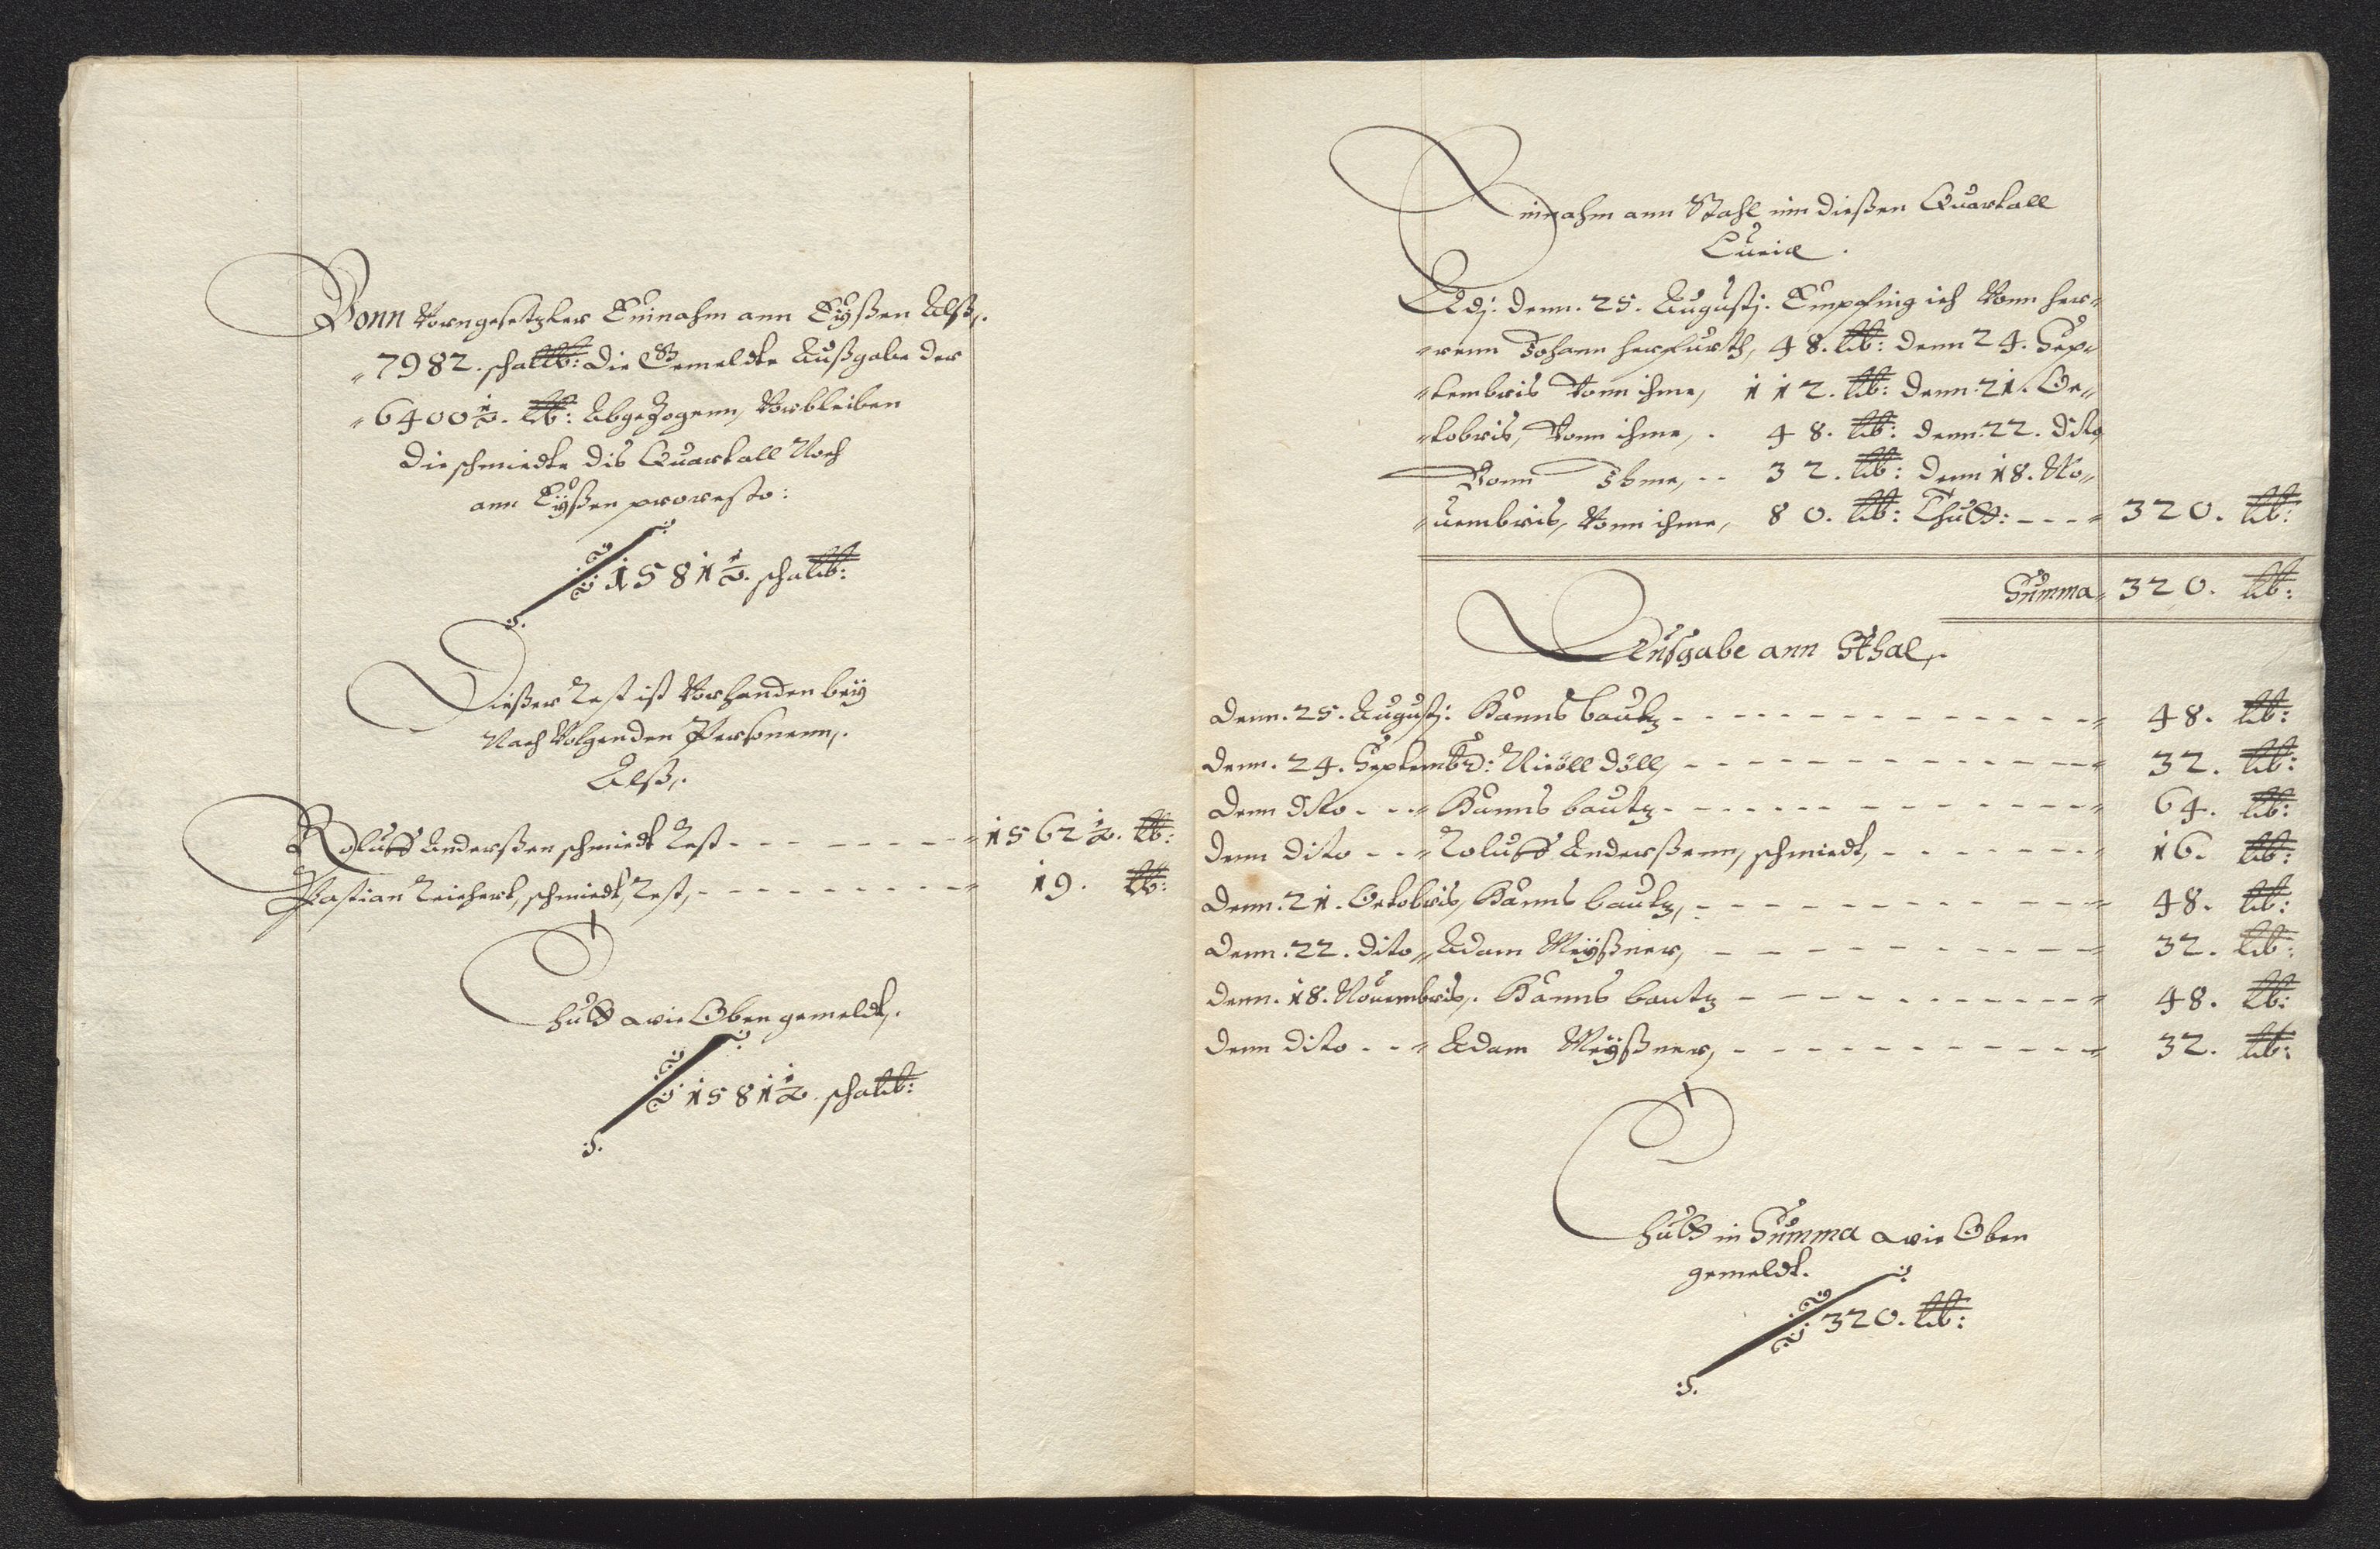 Vonn Vorngesetzter Einnahm ann Eÿßen Alß,.
7982. scha℔: die Gemeldte Außgabe der
6400½. ℔: Abgezogenn, Vorbleiben
die schmiedte dis Quartall Noch
ann Eÿßen pro resto:
1581½. scha℔:
Dießer Rest ist Vorhanden beÿ
Nach Volgenden Personenn,.
Alß,.
Roluff Anderßen schmiedt Rest - - - 1562½. ℔:
Pastian Reichert, schmiedt, Rest, - - - 19. ℔:
Thutt wie Oben gemeldt,.
1581½. scha℔:
Einnahm ann Stahl inn dießen Quartall
Luciæ.
Adj: denn. 25. Augustj. Empfing ich Vonn her„
„renn Johann herfurth, 48. ℔: denn 24. Sep„
„tembris Vonn ihme, 112. ℔: denn. 21. Oc„
„tobris, Vonn ihme,. 48. ℔: denn. 22. dito
Vonn Ihme, - - 32. ℔: denn 18. No„
„uembris, Vonn ihme, 80. ℔: Thutt: - - - 320. ℔:
Summa„ 320. ℔:
Ausgabe ann Sthal,.
denn. 25. Augustj. Hanns bautz - - - 48. ℔:
denn. 24. Septembr: Nicöll döll, - - - 32. ℔:
denn dito - - „ Hanns bautz - - - 64. ℔:
denn dito - - „ Roluff Anderßenn, schmiedt, - - - 16. ℔:
denn. 21. Octobris, Hanns bautz, - - - 48. ℔:
denn. 22. dito „ Adam Meÿßner, - - - 32. ℔:
denn. 18. Nouembris,. Hanns bautz - - - 48. ℔:
denn dito - - „ Adam Meÿßner, - - - 32. ℔:
Thutt in Summa wie Oben
gemeldt.
320. ℔: